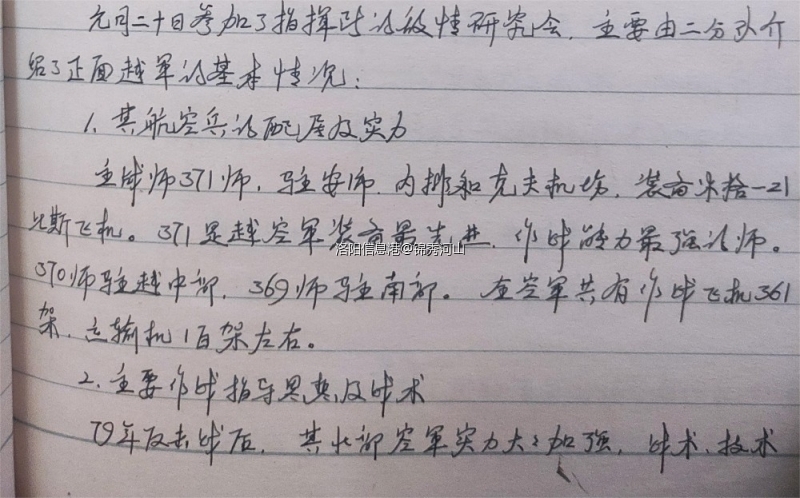 元月二十日参加了指挥所论敌情研究会，主要由二分队介
绍了正面越军的基本情况：
1、其航空兵的配属及实力
主战师371师，驻安沛、内排和克夫机场，装备米格-21
比斯飞机。371是越空军装备最先进，作战能力最强的师。
洛阳信息港@锦秀河山
370师驻越中部，369师驻南部。全空军共有作战飞机361
架，运输机1百架左右。
2、主要作战指导思想及战术
79年反击战后，其北部空军实力大大加强，战术、技术